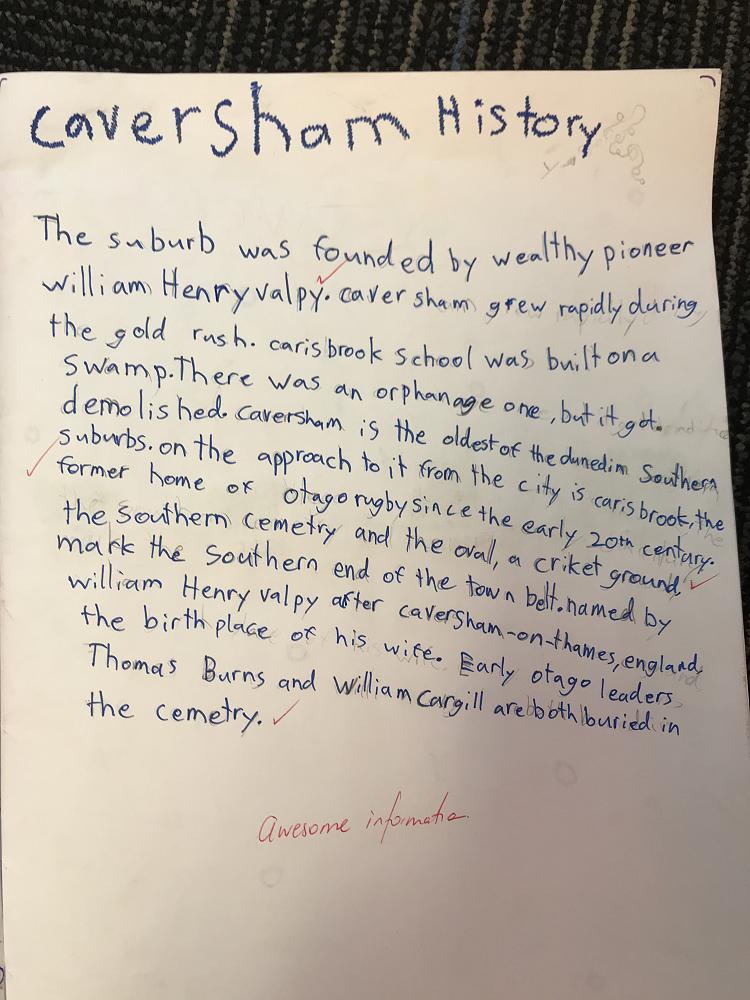 Caversham History
The suburb was founded by wealthy pioneer
william Henry valpy. caversham grew rapidly during
the gold rush. carisbrook school was built on a
swamp. There was an orphanage one, but it got
demolished. caversham is the oldest of the dunedim Southern
suburbs. on the approach to it from the city is carisbrook, the
former home of otago rugby since the early 20th century.
the Southern cemetry and the oval, a criket ground
mark the Southern end of the town belt. named by
william Henry valpy after caversham-on-thames, england
the birth place of his wife. Early otago leaders
Thomas Burns and William Cargill are both buried in
the cemetry.
Awesome